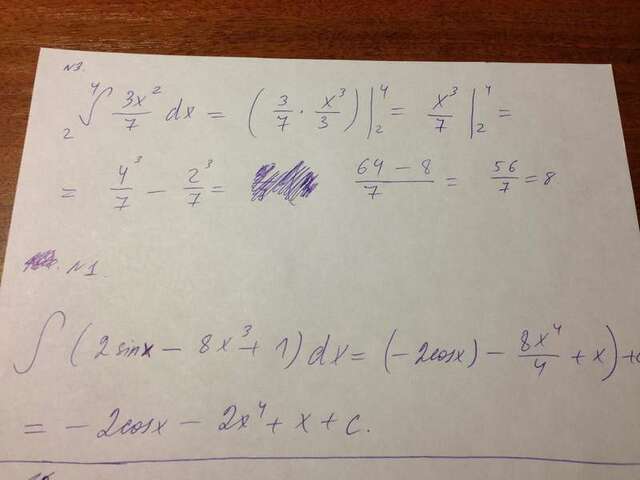 №3.
₂⁴∫ 3x²/7 dx = (3/7 · x³/3)|₂⁴ = x³/7 |₂⁴ =
= 4³/7 − 2³/7 = (64 − 8)/7 = 56/7 = 8
№1.
∫ (2sinx − 8x³ + 1)dx = (−2cosx) − 8x⁴/4 + x) + c
= −2cosx − 2x⁴ + x + c.